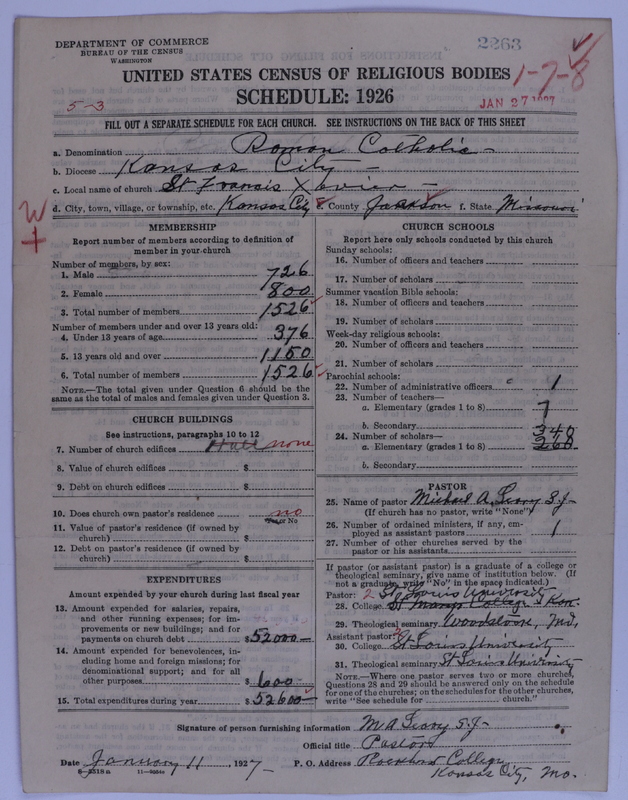 DEPARTMENT OF COMMERCE
BUREAU OF THE CENSUS
WASHINGTON
2263
UNITED STATES CENSUS OF RELIGIOUS BODIES
1-7-8
SCHEDULE: 1926
5-3
JAN 27 1927
FILL OUT A SEPARATE SCHEDULE FOR EACH CHURCH. SEE INSTRUCTIONS ON THE BACK OF THIS SHEET
a. Denomination Roman Catholic
b. Diocese Kansas City
c. Local name of church St Francis Xavier
d. City, town, village, or township, etc. Kansas City e. County Jackson f. State Missouri
W
+
MEMBERSHIP
Report number of members according to definition of
member in your church
Number of members, by sex:
1. Male 726
2. Female 800
3. Total number of members 1526
Number of members under and over 13 years old:
4. Under 13 years of age 376
5. 13 years old and over 1150
6. Total number of members 1526
NOTE.—The total given under Question 6 should be the
same as the total of males and females given under Question 3.
CHURCH BUILDINGS
See instructions, paragraphs 10 to 12
7. Number of church edifices Hall none
8. Value of church edifices $
9. Debt on church edifices $
10. Does church own pastor's residence no
Yes or No
11. Value of pastor's residence (if owned by
church) $
12. Debt on pastor's residence (if owned by
church) $
EXPENDITURES
Amount expended by your church during last fiscal year
13. Amount expended for salaries, repairs,
and other running expenses; for im-
provements or new buildings; and for
payments on church debt $52000
14. Amount expended for benevolences, in-
cluding home and foreign missions; for
denominational support; and for all
other purposes $600
15. Total expenditures during year $52600
CHURCH SCHOOLS
Report here only schools conducted by this church
Sunday schools:
16. Number of officers and teachers
17. Number of scholars
Summer vacation Bible schools:
18. Number of officers and teachers
19. Number of scholars
Week-day religious schools:
20. Number of officers and teachers
21. Number of scholars
Parochial schools:
22. Number of administrative officers 1
23. Number of teachers—
a. Elementary (grades 1 to 8) 7
b. Secondary
24. Number of scholars— 340
a. Elementary (grades 1 to 8) 260
b. Secondary
PASTOR
25. Name of pastor Michael A. S.J.
(If church has no pastor, write "None")
26. Number of ordained ministers, if any, em-
ployed as assistant pastors 1
27. Number of other churches served by the
pastor or his assistants
If pastor (or assistant pastor) is a graduate of a college or
theological seminary, give name of institution below. (If
not a graduate, write "No" in the space indicated.)
Pastor: 2 St Louis University
28. College St Marys College Kan.
29. Theological seminary Woodstock, Md.
Assistant pastor:
30. College St Louis University
31. Theological seminary St Louis University
NOTE.—Where one pastor serves two or more churches,
Questions 28 and 29 should be answered only on the schedule
for one of the churches; on the schedules for the other churches,
write "See schedule for church."
Signature of person furnishing information M A S.J.
Official title Pastor
Date January 11, 1927 P. O. Address Rockhurst College
Kansas City, Mo.
11—9204